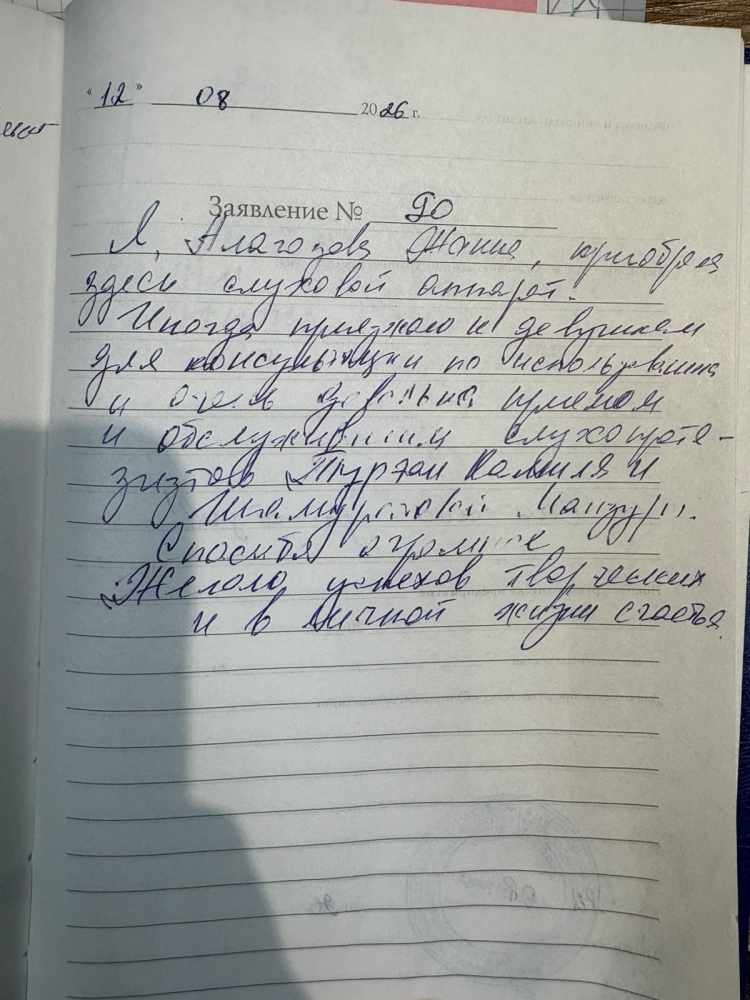 "12" 08 2026 г.
Заявление № 90
Я, Алагозова Жанна, приобрела
здесь слуховой аппарат.
Иногда приезжаю к девушкам
для консультации по использованию
и очень довольна приемом
и обслуживанием слухопроте-
зистов Турган Камиля и
Шамуратовой Манзуры.
Спасибо огромное
Желаю успехов творческих
и в личной жизни счастья.